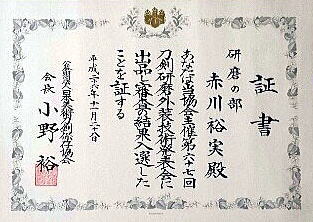 証書
研磨の部
赤川裕実殿
あなたは当協会主催第六十七回
刀剣研磨外装技術発表会に
出品し審査の結果入選した
ことを証する
平成二十六年十一月二十八日
公益財団法人日本美術刀剣保存協会
会長 小野裕